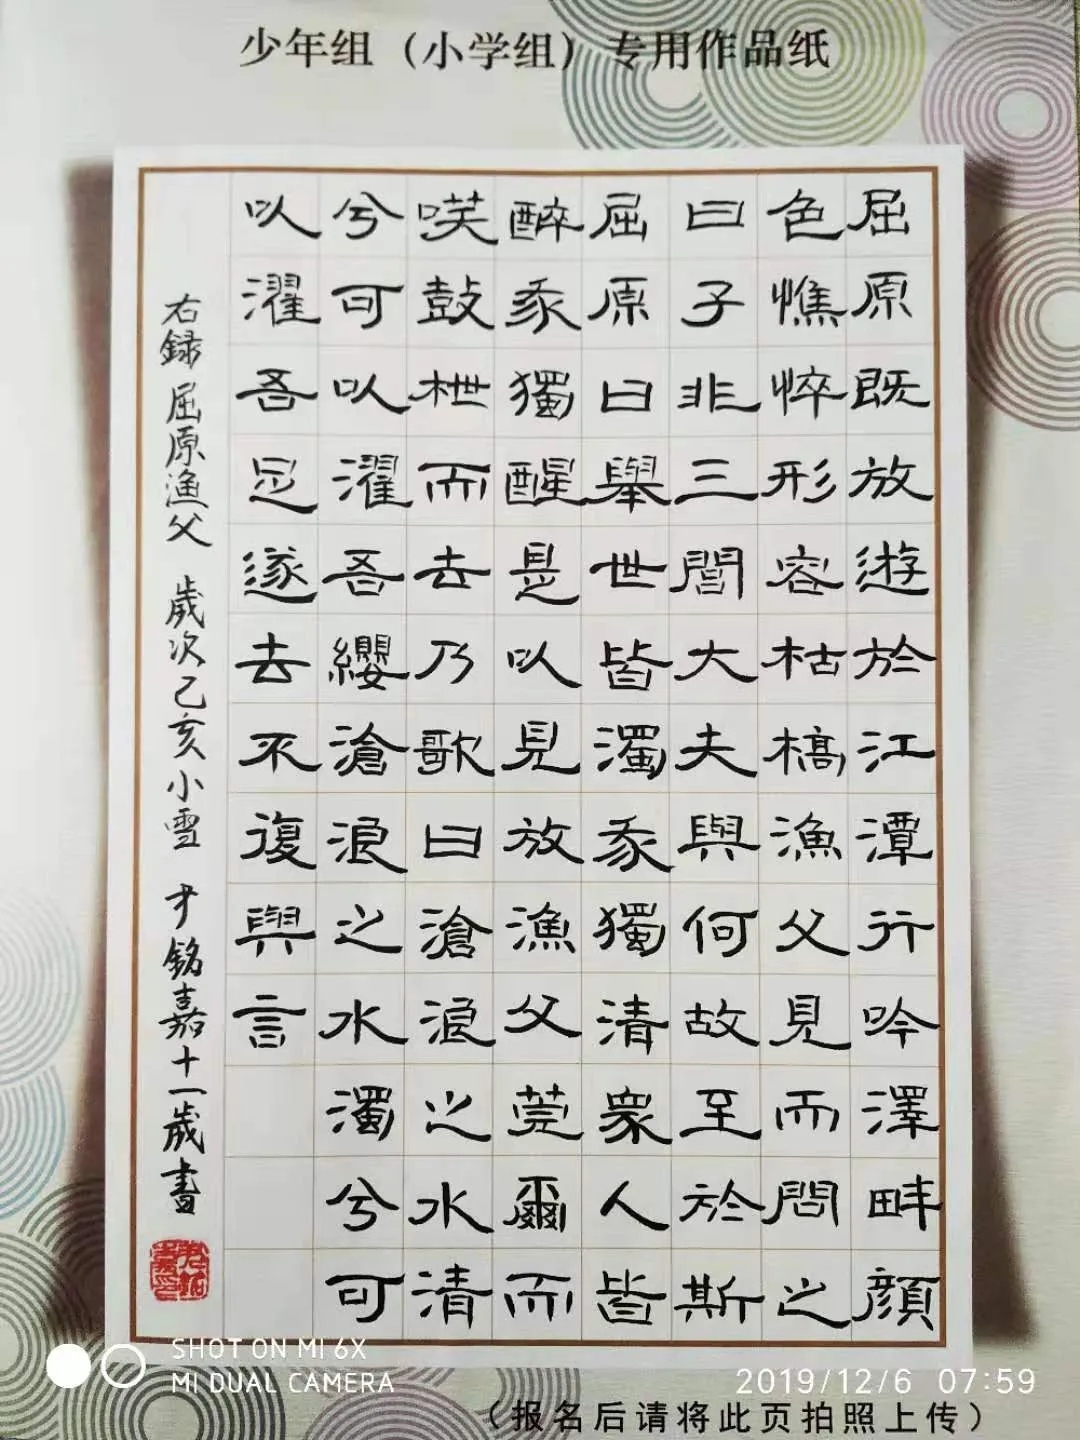 少年组（小学组）专用作品纸
屈原既放遊於江潭行吟澤畔顏
色憔悴形容枯槁漁父見而問之
曰子非三閭大夫與何故至於斯
屈原曰舉世皆濁我獨清眾人皆
醉我獨醒是以見放漁父莞爾而
笑鼓枻而去乃歌曰滄浪之水清
兮可以濯吾纓滄浪之水濁兮可
以濯吾足遂去不復與言
右録屈原漁父 歲次己亥小雪 才銘嘉十一歲書
SHOT ON MI 6X
MI DUAL CAMERA
2019/12/6 07:59
（报名后请将此页拍照上传）